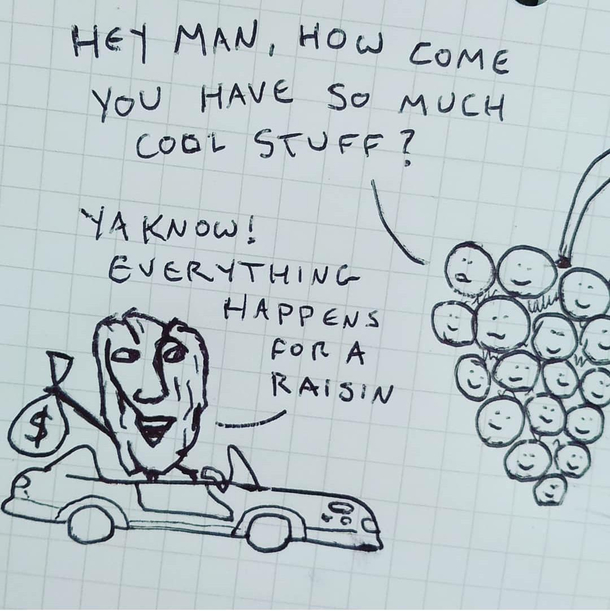 HEY MAN, HOW COME
YOU HAVE SO MUCH
COOL STUFF?
YA KNOW!
EVERYTHING
HAPPENS
FOR A
RAISIN
$